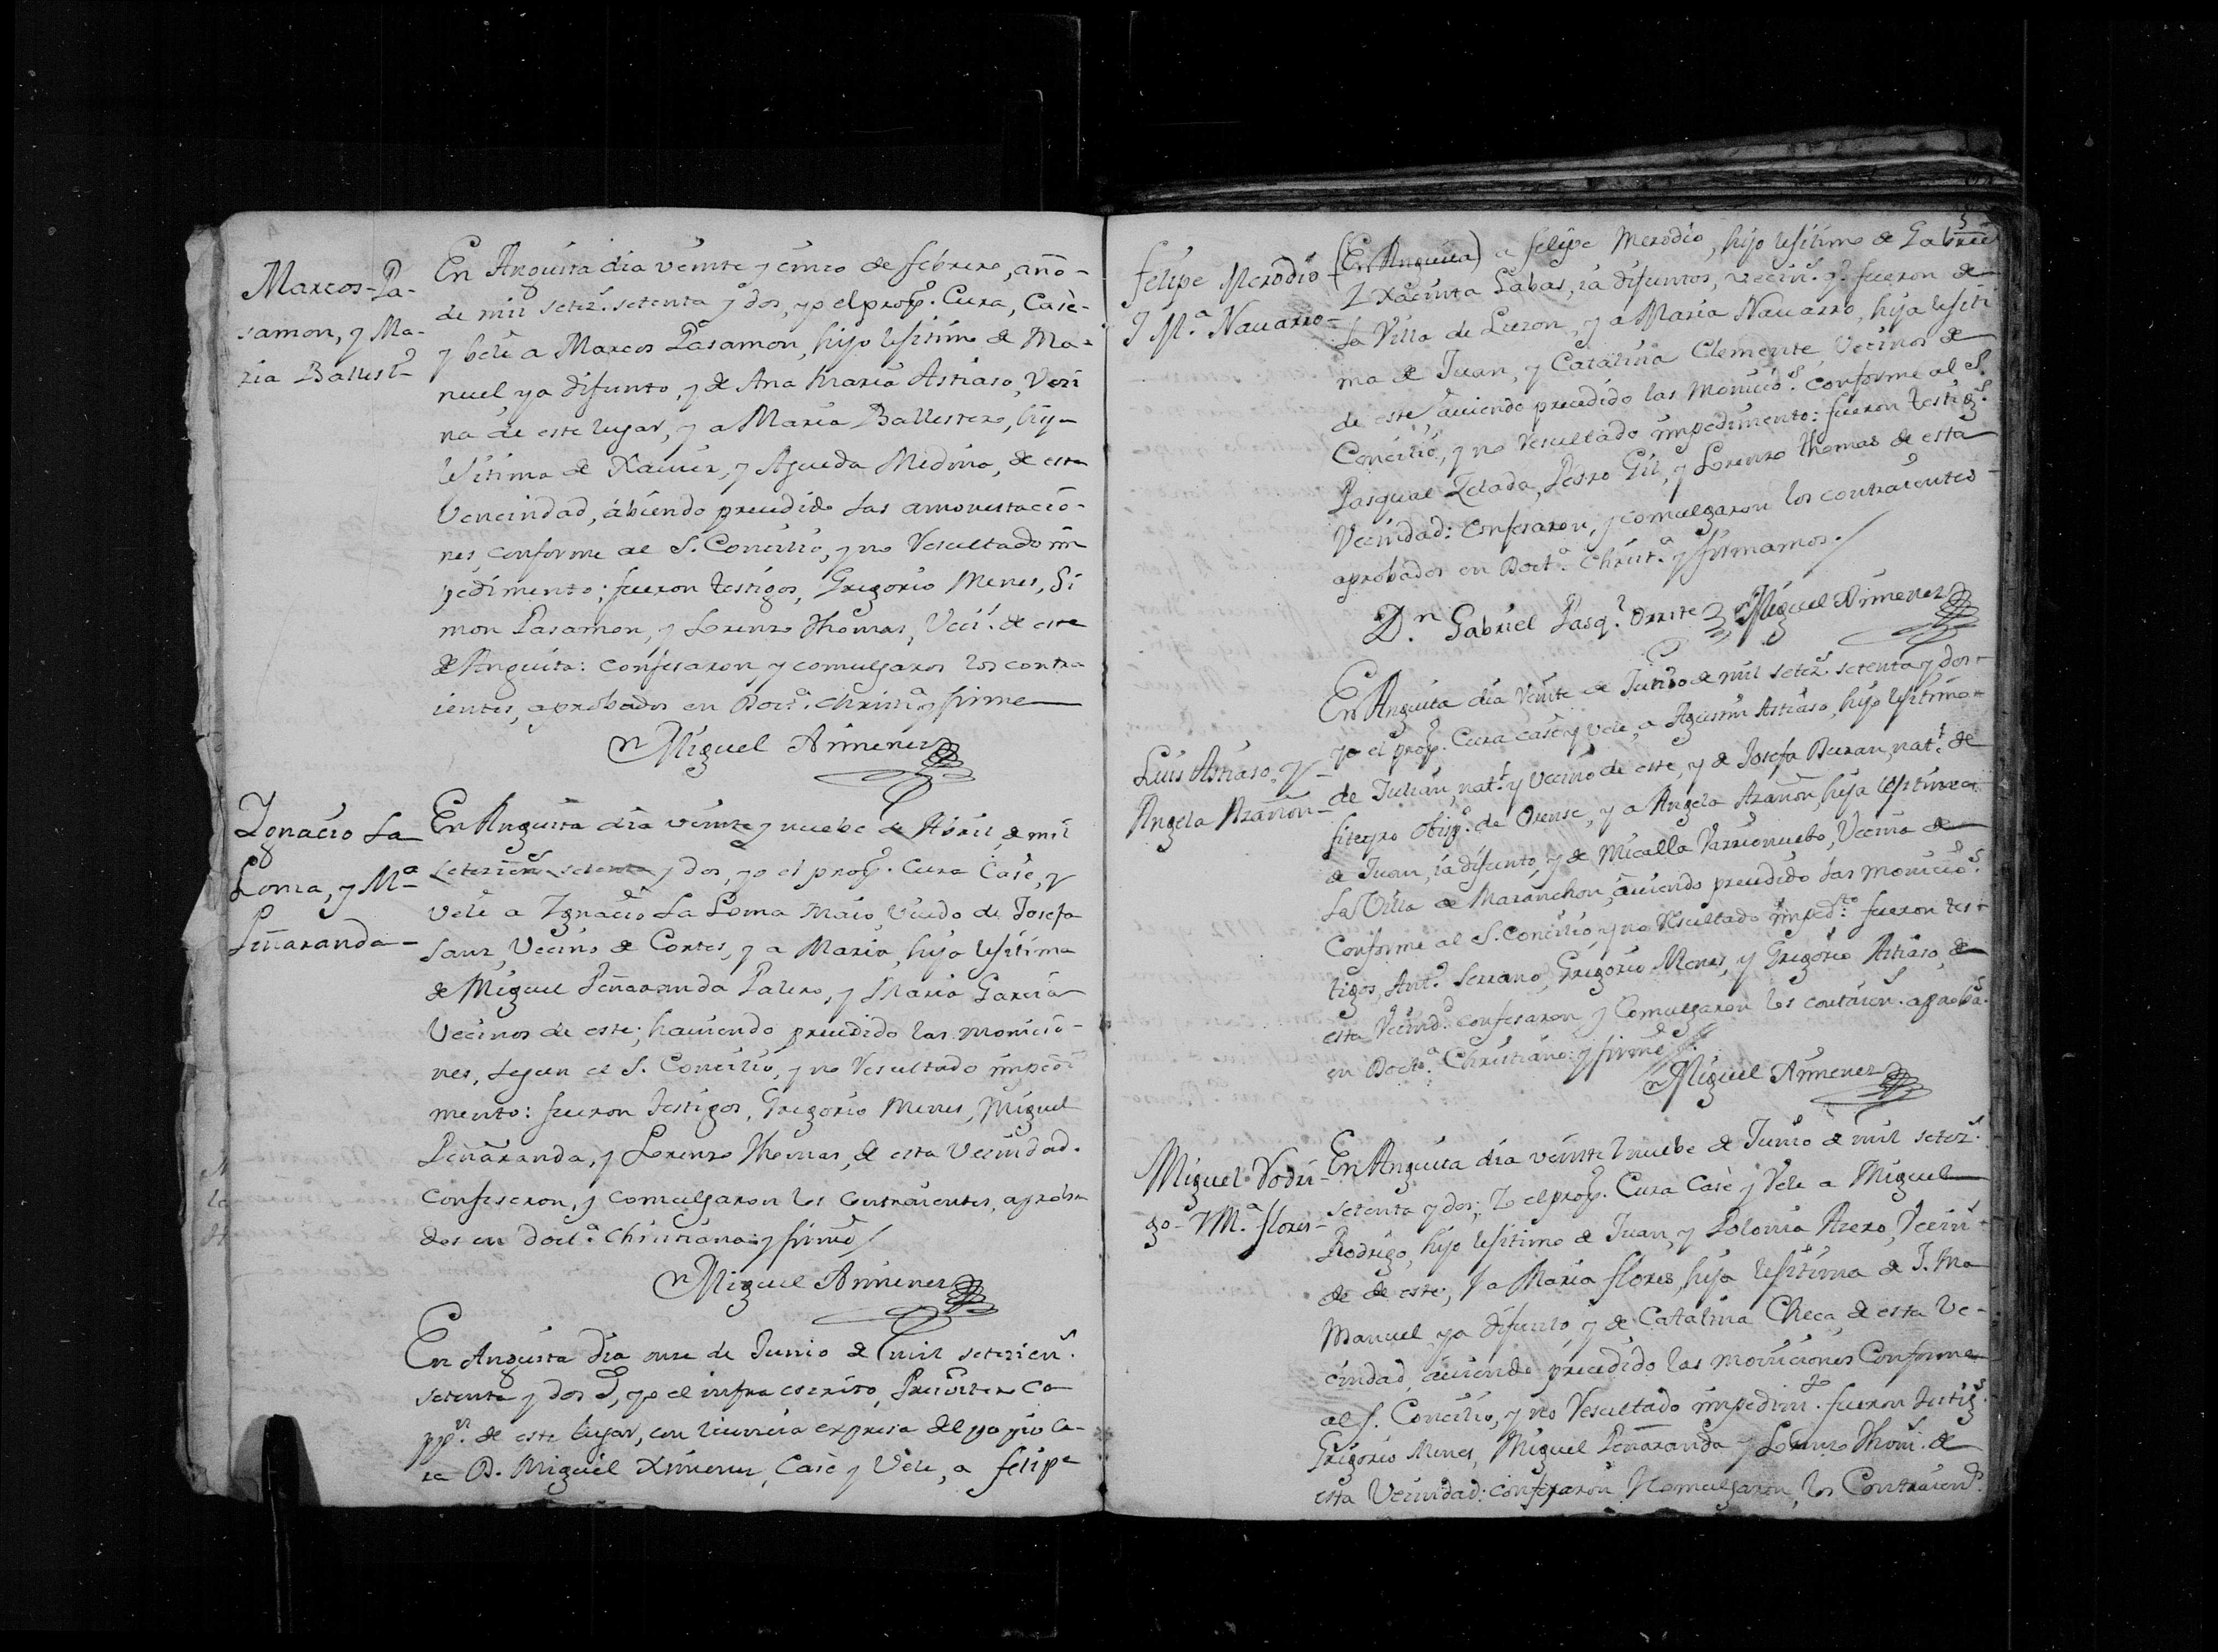 Marcos Pa-
samon, y Ma-
ria Ballest.
En Anguita dia veinte y cinco de febrero, año
de mil setez.s setenta y dos, yo el prop.o Cura, Casè
y belè a Marcos Pasamon, hijo lejitimo de Ma-
nuel ya difunto, y de Ana Maria Astraso, Vezi
na de este lugar, y a Maria Ballestero, hija
lejitima de Xavier, y Agueda Medina, de esta
Vencindad, abiendo precedido las amonestacio-
nes, conforme al S. Concilio, y no Resultado im
pedimento; fueron testigos, Gregorio Menes, Si
mon Pasamon, y Lorenzo Thomas, Veci.s de este
de Anguita: confesaron y comulgaron los contra
ientes, aprobados en Doct.a Christ.a y firme
Miguel Ximenez
Ygnacio La
Loma, y M.a
Piñaranda
En Anguita dia veinte y nuebe de Abril, de mil
setezien.s setenta y dos, yo el prop.o Cura Casè, y
velè a Ygnacio La Loma Maio, Viudo de Josefa
Sanz, Vecino de Cortes, y a Maria, hija lejitima
de Miguel Peñaranda Palero, y Maria Garcia
Vecinos de este; haviendo precedido las monicio-
nes, segun el S. Concilio, y no Resultado impedi
mento: fueron testigos, Gregorio Menes, Miguel
Peñaranda, y Lorenzo Thomas, de esta Vecindad.
Confesaron, y comulgaron los Contraientes, aproba
dos en doct.a Christiana: y firmè
Miguel Ximenez
En Anguita dia onze de Junio de mil setezien.s
setenta y dos, yo el infra escrito, Presvitero Ca
pp.n de este lugar, con licencia expresa del propio Cu-
ra D. Miguel Ximenez, Casè y Velè, a felipe
5
felipe Merodio
Y M.a Navarro
(En Anguita) a felipe Merodio, hijo lejitimo de Gabriel
Y Xacinta Labas, ia difuntos, vecin.s q.e fueron de
La Villa de Luzon, y a Maria Navarro, hija lejiti
ma de Juan, y Catalina Clemente, Vecinos de
de este, aviendo precedido las Monicio.s conforme al S.
Concilio, y no Resultado impedimento: fueron testig.s
Pasqual Zelada, Pedro Gil, y Lorenzo Thomas de esta
Vecindad: confesaron, y comulgaron los contraientes
aprobados en Doct.a Christ.a y firmamos.
D.n Gabriel Pasq.l Orrite Miguel Ximenez
Luis Astraso, y
Angela Azañon
En Anguita dia Veinte de Junio de mil setez.s setenta y dos
yo el prop.o Cura casè y velè, a Agustin Astraso, hijo lejitimo
de Julian, nat.l y Vecino de este, y de Josefa Duran, nat.l de
obisp.o de Orense, y a Angela Azañon, hija lejitima
de Juan, ia difunto, y de Micalla Varrionuebo, Vecina de
La Villa de Maranchon, aviendo precedido las monicio.s
Conforme al S. Concilio y no Resultado imped.to: fueron tes-
tigos, Ant.o Serrano, Gregorio Menes, y Gregorio Astraso, de
esta Vecind.d confesaron y Comulgaron los contraien.s aproba.s
en Doct.a Christiana: y firmè
Miguel Ximenez
Miguel Rodri-
go Y M.a flores
En Anguita dia veinte Y nuebe de Junio de mil setez.s
setenta y dos; Yo el prop.o Cura Casè y Velè a Miguel
Rodrigo, hijo lejitimo de Juan, y Polonia Azero, Vecin.s
de de este; Y a Maria flores, hija lejitima de J. Ma
Manuel ya difunto, y de Catalina Checa, de esta Ve-
cindad, aviendo precedido las moniciones Conforme
al S. Concilio, y no Resultado impedim.to fueron testig.s
Gregorio Menes, Miguel Peñaranda y Lorenzo Thom.s de
esta Vecindad: confesaron Y Comulgaron, los Contraien.s